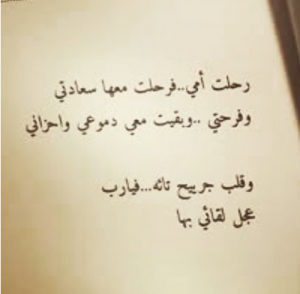 رحلت أمي..فرحلت معها سعادتي
وفرحتي ..وبقيت معي دموعي واحزاني
وقلب جرييح تائه...فيارب
عجل لقائي بها